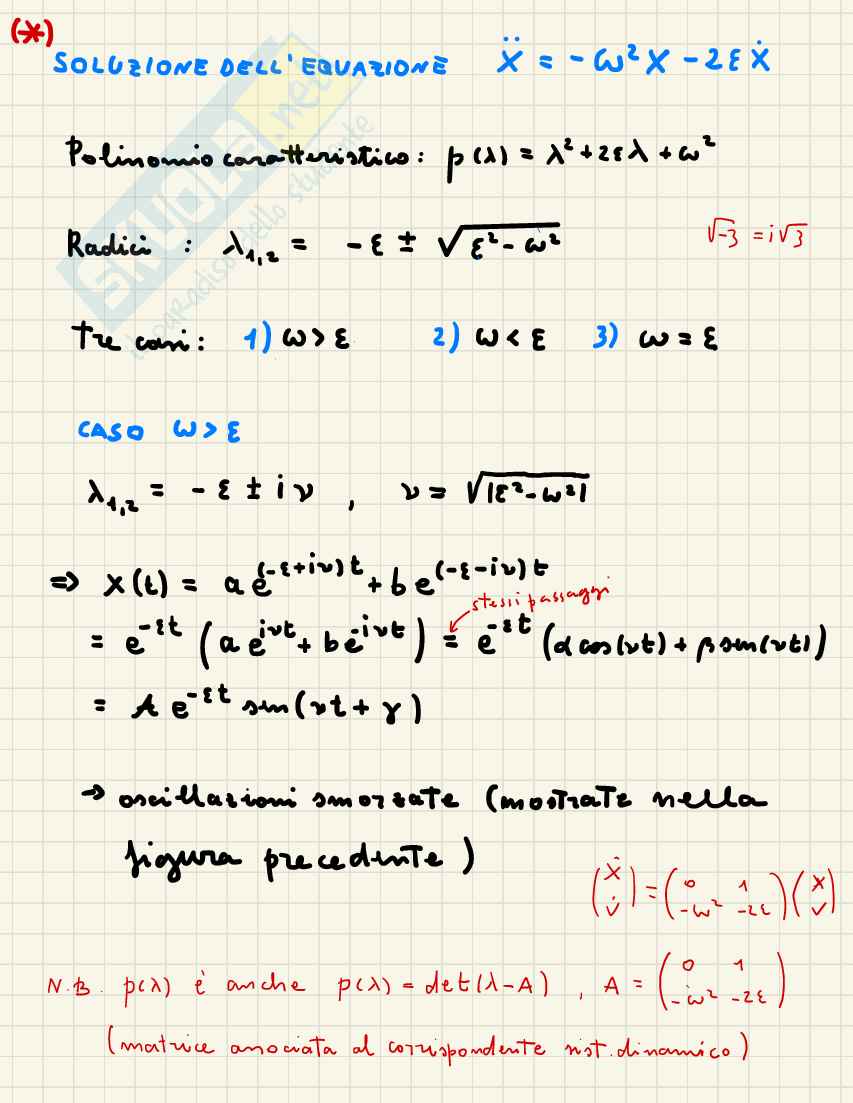 (*)
SOLUZIONE DELL'EQUAZIONE ẍ = -ω²x - 2εẋ
Polinomio caratteristico: p(λ) = λ² + 2ελ + ω²
Radici : λ₁,₂ = -ε ± √(ε² - ω²)
√-3 = i√3
Tre casi: 1) ω > ε 2) ω < ε 3) ω = ε
CASO ω > ε
λ₁,₂ = -ε ± iν , ν = √|ε² - ω²|
⇒ x(t) = a e^(-ε+iν)t + b e^(-ε-iν)t
stessi passaggi
= e^-εt (a e^iνt + b e^-iνt) = e^-εt (α cos(νt) + β sin(νt))
= A e^-εt sin(νt + γ)
→ oscillazioni smorzate (mostrate nella
figura precedente)
(ẋ v̇) = (0 1 -ω² -2ε)(x v)
N.B. p(λ) è anche p(λ) = det(λ-A) , A = (0 1 -ω² -2ε)
(matrice associata al corrispondente sist. dinamico)
SKUOLA.net
il paradiso dello studente